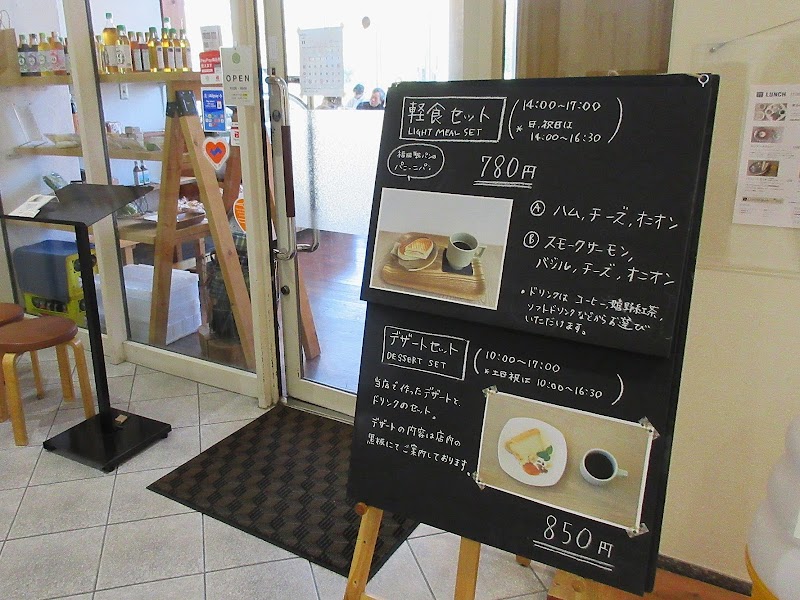 OPEN
LUNCH
軽食セット
LIGHT MEAL SET
(14:00~17:00)
*日,祝日は
14:00~16:30
パニーニパン
780円
Ⓐ ハム,チーズ,オニオン
Ⓑ スモークサーモン,
バジル,チーズ,オニオン
・ドリンクは コーヒー,嬉野紅茶,
ソフトドリンクなどからお選び
いただけます。
デザートセット
DESSERT SET
(10:00~17:00)
*土日祝は 10:00~16:30
当店で作ったデザートと、
ドリンクのセット。
デザートの内容は店内の
黒板にてご案内しております。
850円